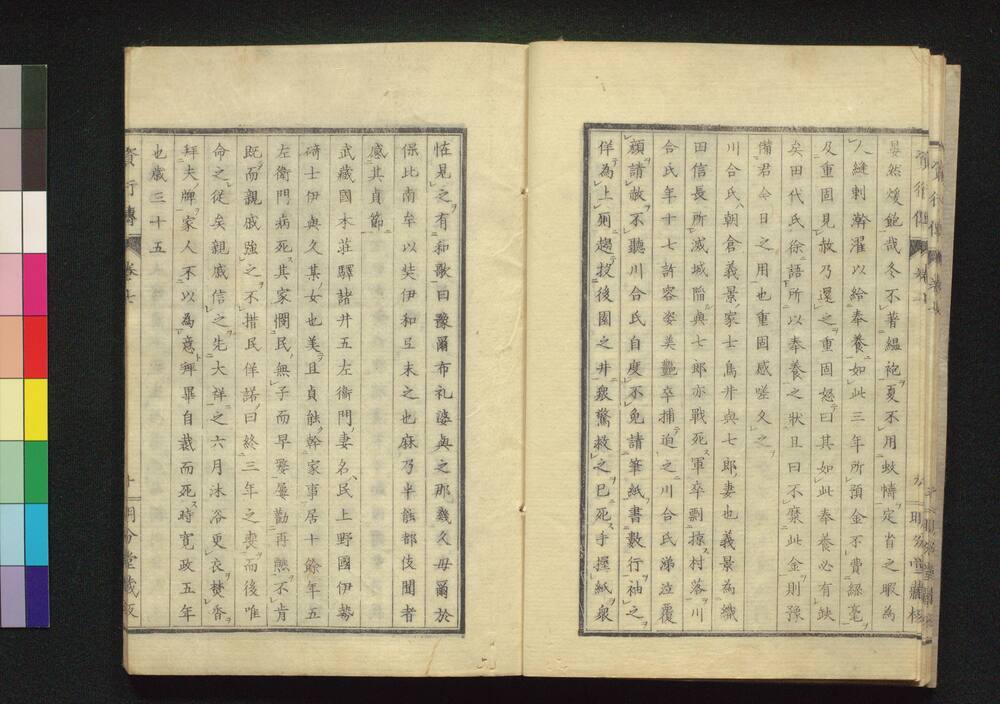 晏然煖飽哉冬不著縕袍夏不用蚊幬定省之暇為
人縫刺澣濯以給奉養如此三年所預金不費綠毫
及重固見赦乃還之重固怒曰其如此奉養必有缺
矣田代氏徐語所以奉養之狀且曰不糜此金則豫
備君今日之用也重固感嗟久之
川合氏朝倉義景家士鳥井與七郎妻也義景為織
田信長所滅城陷與七郎亦戰死軍卒剽掠村落川
合氏年十七許容姿美艷卒捕迫之川合氏涕泣覆
顏請赦不聽川合氏自度不免請筆紙書數行袖之
佯為上厠趨投後園之井衆驚救之已死手握紙衆
恠見之有和歌曰豫爾布礼婆與之那幾久毋爾於
保比南牟以奘伊和互末之也麻乃半蝕都伎聞者
感其貞節
武藏國木荘驛諸井五左衞門妻名民上野國伊勢
碕士伊與久某女也美且貞蝕幹家事居十餘年五
左衞門病死其家憫民無子而早嫠屢勸再醮不肯
既而親戚強之不措民佯諾曰終三年之喪而後唯
命之従矣親戚信之先大祥之六月沐浴更衣焚香
拜夫牌家人不以為意拜畢自裁而死時寛政五年
也歳三十五
賢行傳
卷七
十
明分堂蔵版